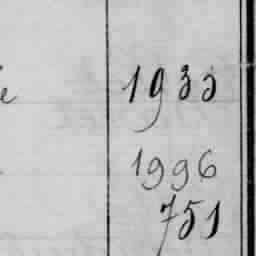 e 1933
1996
751